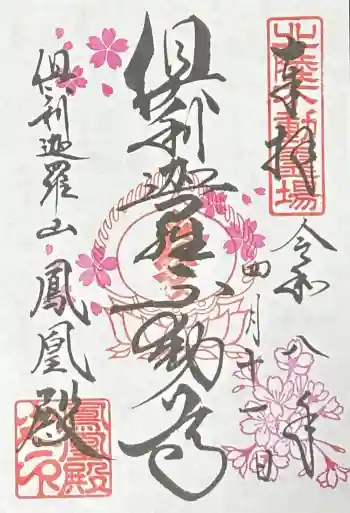 奉拝
北陸不動霊場
令和八年
四月十一日
倶利迦羅不動尊
倶利迦羅山
鳳凰殿
鳳凰殿